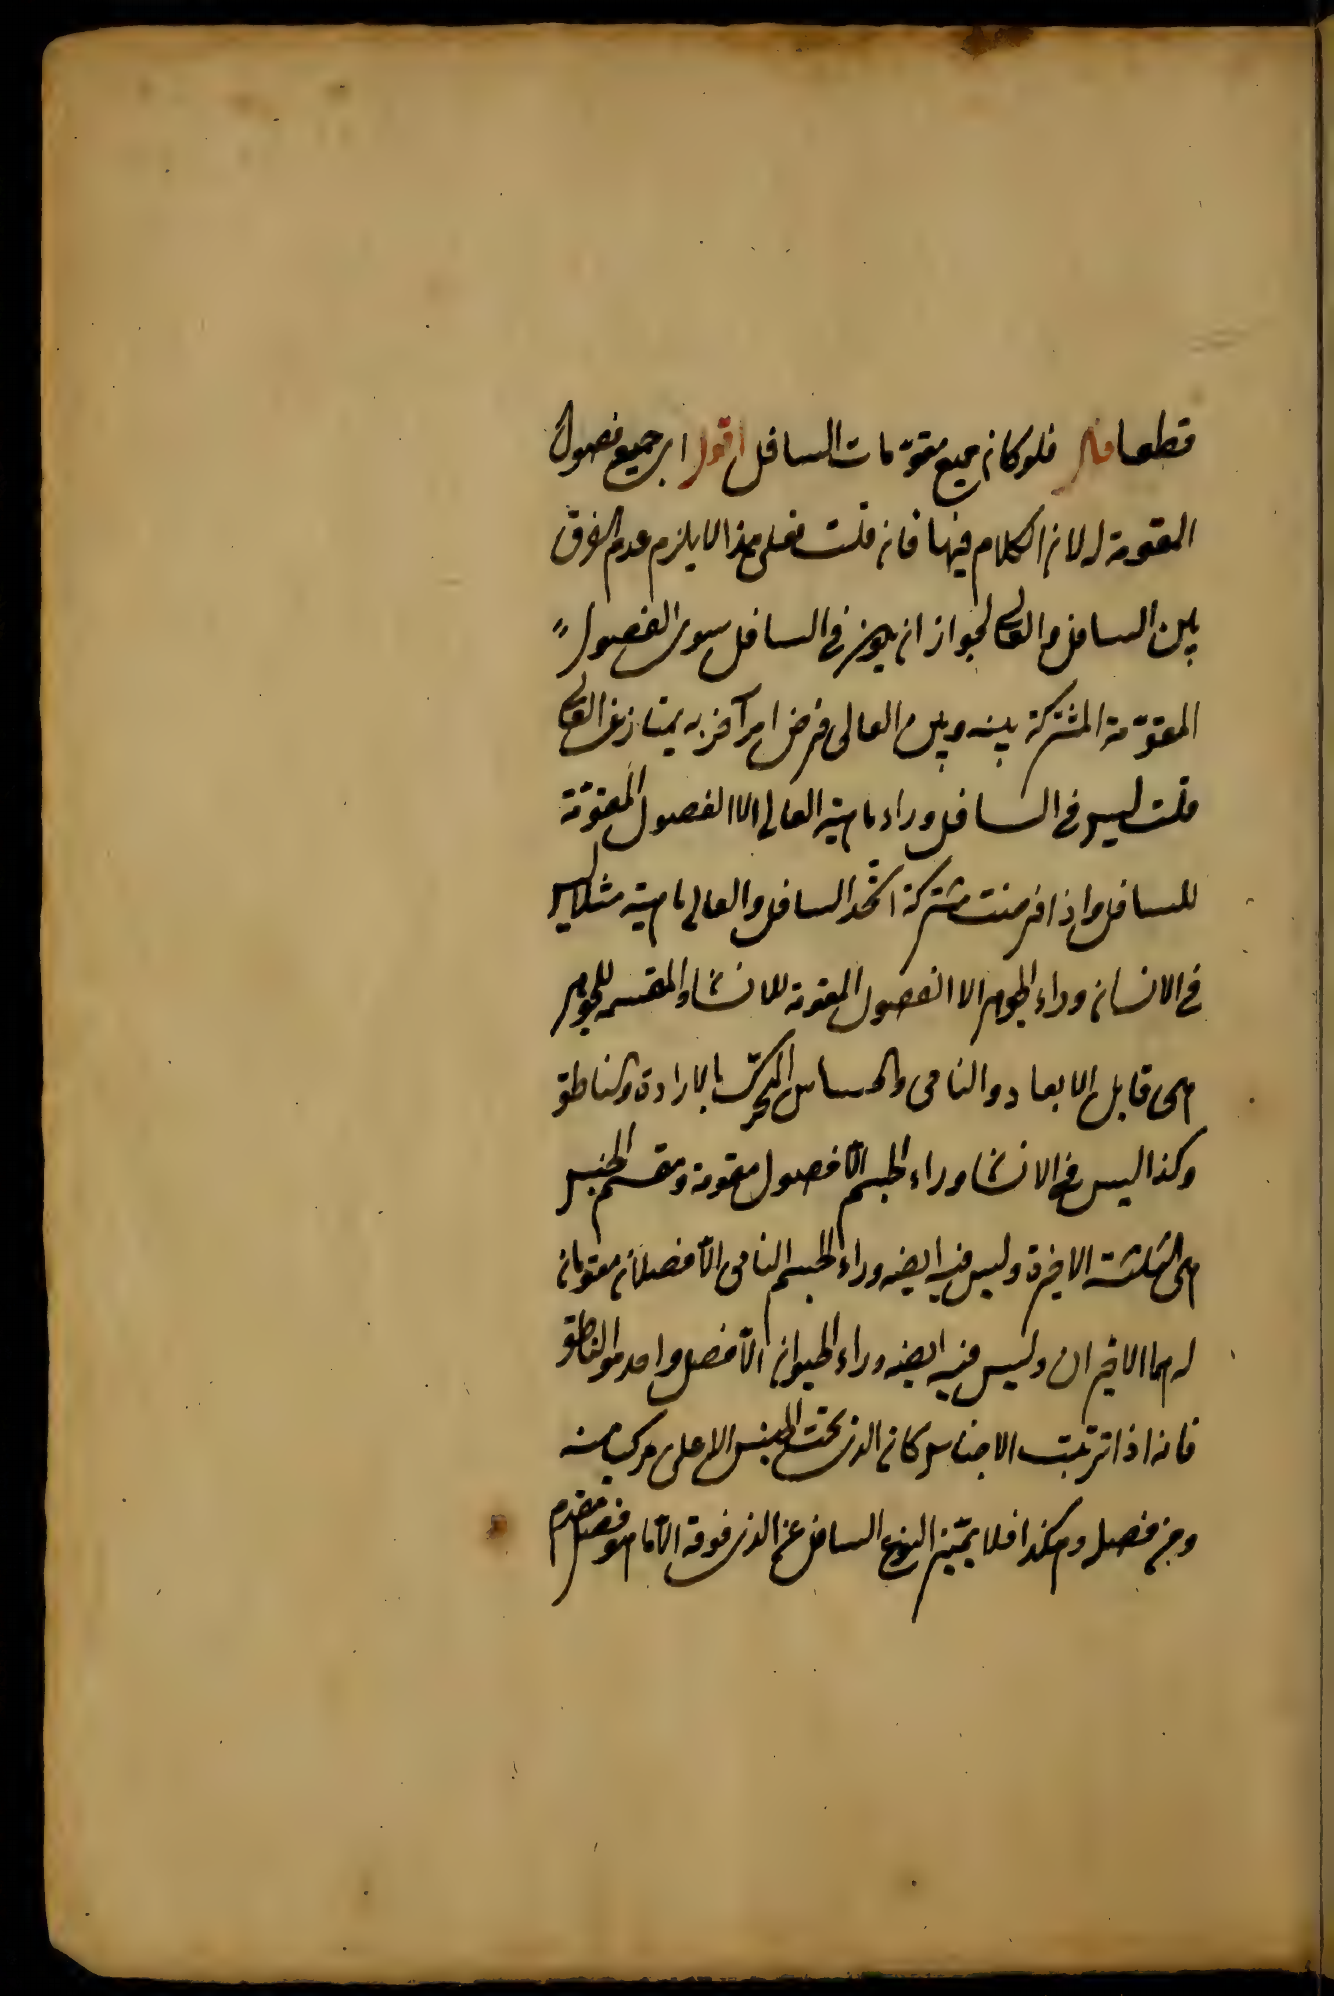 قطعا قال فلو كان جميع مقوّمات السافل اقول اى جميع فصول
المقومة له لان الكلام فيها فان قلت فعلى هذا لا يلزم عدم الفرق
بين السافل والعالى لجواز ان يكون فى السافل سوى الفصول
المقوّمة المشتركة بينه وبين العالى فرض امر آخر به يمتاز عن العالى
قلت ليس فى السافل وراء ماهية العالى الا الفصول المقوّمة
للسافل واذا فرضت مشتركة اتّحد السافل والعالى ماهية مثلا ليس
فى الانسان وراء الجوهر الا الفصول المقومة للانسان والمقسمة للجوهر
هى قابل الابعاد والنامى والحساس المتحرك بالارادة والناطق
وكذا ليس فى الانسان وراء الجسم الّا فصول مقومة ومقسم الجنس
هى الثلثة الاخيرة وليس فيه ايضه وراء الجسم النامى الّا فصلان مقومان
له هما الاخيران وليس فيه ايضه وراء الحيوان الّا فصل واحد هو الناطق
فانه اذا ترتبت الاجناس كان الذى تحت الجنس الاعلى مركبا منه
ومن فصل وهكذا فلا يتميّز النوع السافل عن الذى فوقه الّا بما هو فصل مقوم